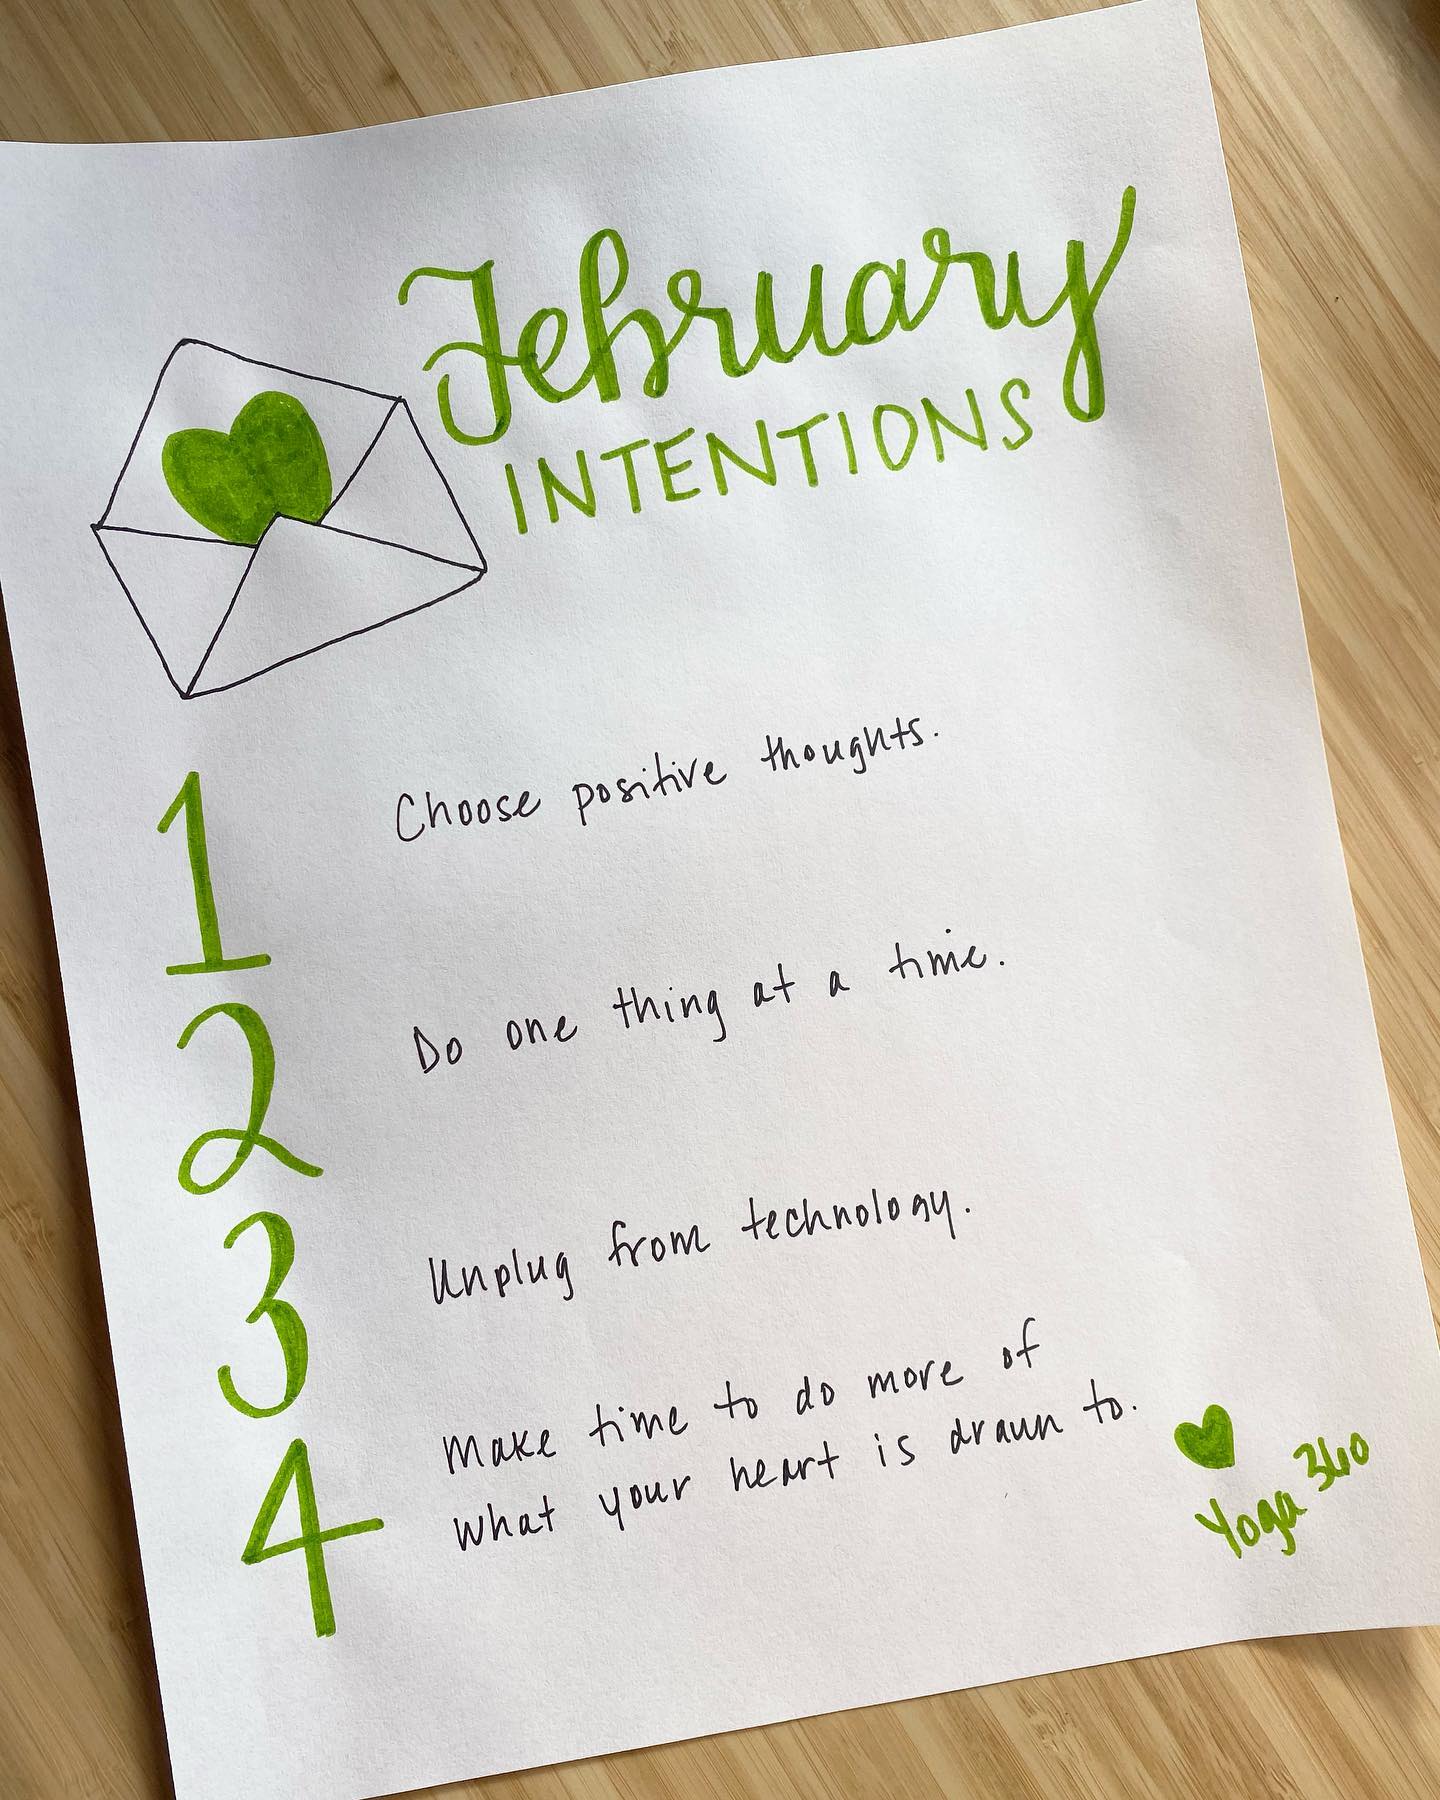 February
INTENTIONS
1 Choose positive thoughts.
2 Do one thing at a time.
3 Unplug from technology.
4 Make time to do more of
what your heart is drawn to.
Yoga 360